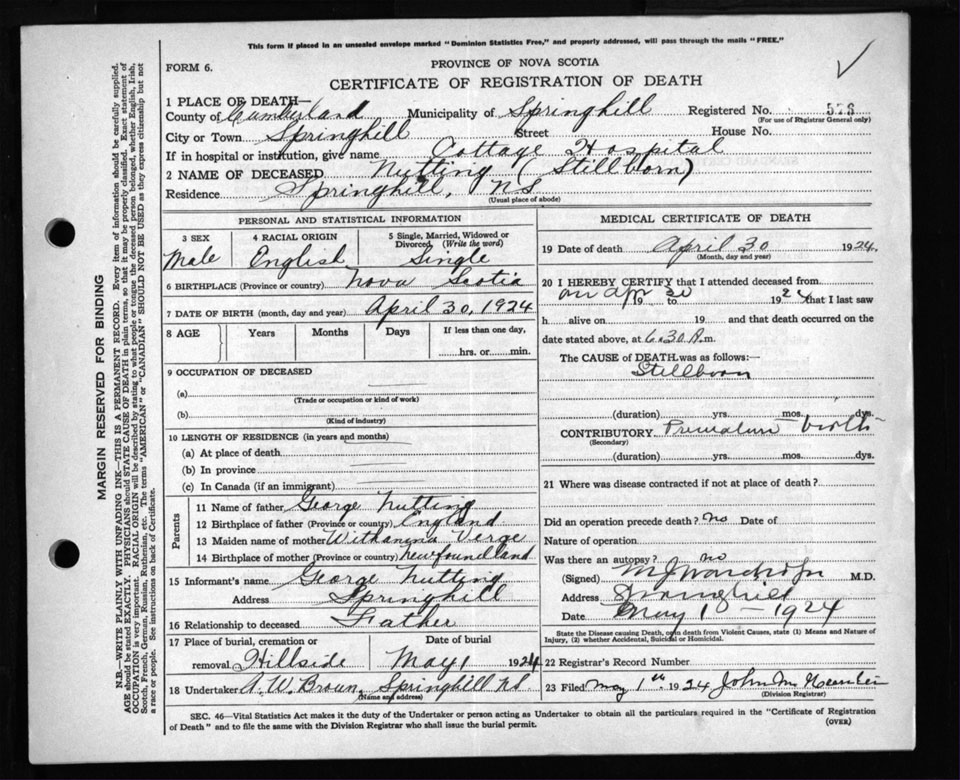 This form if placed in an unsealed envelope marked "Dominion Statistics Free," and properly addressed, will pass through the mails "FREE."
FORM 6.
PROVINCE OF NOVA SCOTIA
CERTIFICATE OF REGISTRATION OF DEATH
1 PLACE OF DEATH—
County of Cumberland Municipality of Springhill Registered No. 576
(For use of Registrar General only)
City or Town Springhill Street House No.
If in hospital or institution, give name Cottage Hospital
2 NAME OF DECEASED Nutting (Stillborn)
Residence Springhill, NS
(Usual place of abode)
PERSONAL AND STATISTICAL INFORMATION
3 SEX 4 RACIAL ORIGIN 5 Single, Married, Widowed or Divorced, (Write the word)
Male English Single
6 BIRTHPLACE (Province or country) Nova Scotia
7 DATE OF BIRTH (month, day and year) April 30, 1924
8 AGE Years Months Days If less than one day,
hrs. or min.
9 OCCUPATION OF DECEASED
(a)
(Trade or occupation or kind of work)
(b)
(Kind of industry)
10 LENGTH OF RESIDENCE (in years and months)
(a) At place of death
(b) In province
(c) In Canada (if an immigrant)
Parents
11 Name of father George Nutting
12 Birthplace of father (Province or country) England
13 Maiden name of mother Verge
14 Birthplace of mother (Province or country) Newfoundland
15 Informant's name George Nutting
Address Springhill
16 Relationship to deceased Father
17 Place of burial, cremation or removal Hillside Date of burial May 1 1924
18 Undertaker A. W. Brown, Springhill NS.
(Name and address)
MEDICAL CERTIFICATE OF DEATH
19 Date of death April 30 1924.
(Month, day and year)
20 I HEREBY CERTIFY that I attended deceased from
on Apr 30 19 to 1924 that I last saw
h alive on 19 and that death occurred on
date stated above, at 6.30 P.m.
The CAUSE of DEATH was as follows:—
Stillborn
(duration) yrs. mos. dys.
CONTRIBUTORY Premature birth
(Secondary)
(duration) yrs. mos. dys.
21 Where was disease contracted if not at place of death?
Did an operation precede death? no Date of
Nature of operation
Was there an autopsy? no
(Signed) M.D.
Address Springhill
Date May 1 – 1924
State the Disease causing Death, or in death from Violent Causes, state (1) Means and Nature of Injury, (2) whether Accidental, Suicidal or Homicidal.
22 Registrar's Record Number
23 Filed May 1th 1924 John M
(Division Registrar)
SEC. 46—Vital Statistics Act makes it the duty of the Undertaker or person acting as Undertaker to obtain all the particulars required in the "Certificate of Registration
of Death" and to file the same with the Division Registrar who shall issue the burial permit. (OVER)
MARGIN RESERVED FOR BINDING
N.B.—WRITE PLAINLY WITH UNFADING INK—THIS IS A PERMANENT RECORD. Every item of information should be carefully supplied.
AGE should be stated EXACTLY. PHYSICIANS should STATE CAUSE OF DEATH in plain terms, so that it may be properly classified. Exact statement of
OCCUPATION is very important. RACIAL ORIGIN will be described by stating to what people or tongue the deceased person belonged, whether English, Irish,
Scotch, French, German, Russian, Ruthenian, etc. The terms "AMERICAN" or "CANADIAN" SHOULD NOT BE USED as they express citizenship but not
a race or people. See instructions on back of Certificate.